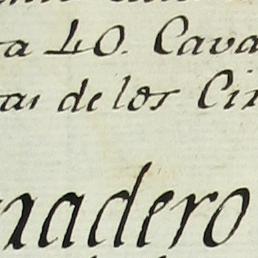 a 40. Cava
as de los Ci
nadero